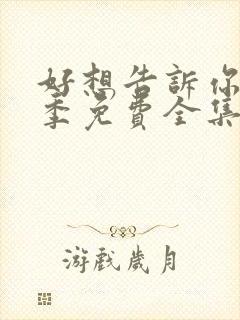 好想告訴你
季免費全集
游戲歲月